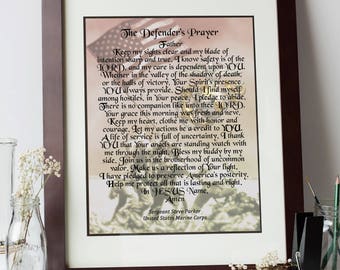 The Defender's Prayer
Father
Keep my sights clear and my blade of
intention sharp and true. I know safety is of the
LORD, and my care is dependent upon YOU.
Whether in the valley of the shadow of death;
or the halls of victory. Your Spirit's presence
YOU always provide. Should I find myself
among hostiles, in Your peace, I pledge to abide.
There is no companion like unto thee LORD.
Your grace this morning was fresh and new.
Keep my heart, clothe me with honor and
courage. Let my actions be a credit to YOU.
A life of service is full of uncertainty. I thank
YOU that Your angels are standing watch with
me through the night. Bless my buddy by my
side. Join us in the brotherhood of uncommon
valor. Make us a reflection of Your light.
I have pledged to preserve America's posterity.
Help me protect all that is lasting and right,
In JESUS Name,
Amen
Sergeant Steve Parker
United States Marine Corps